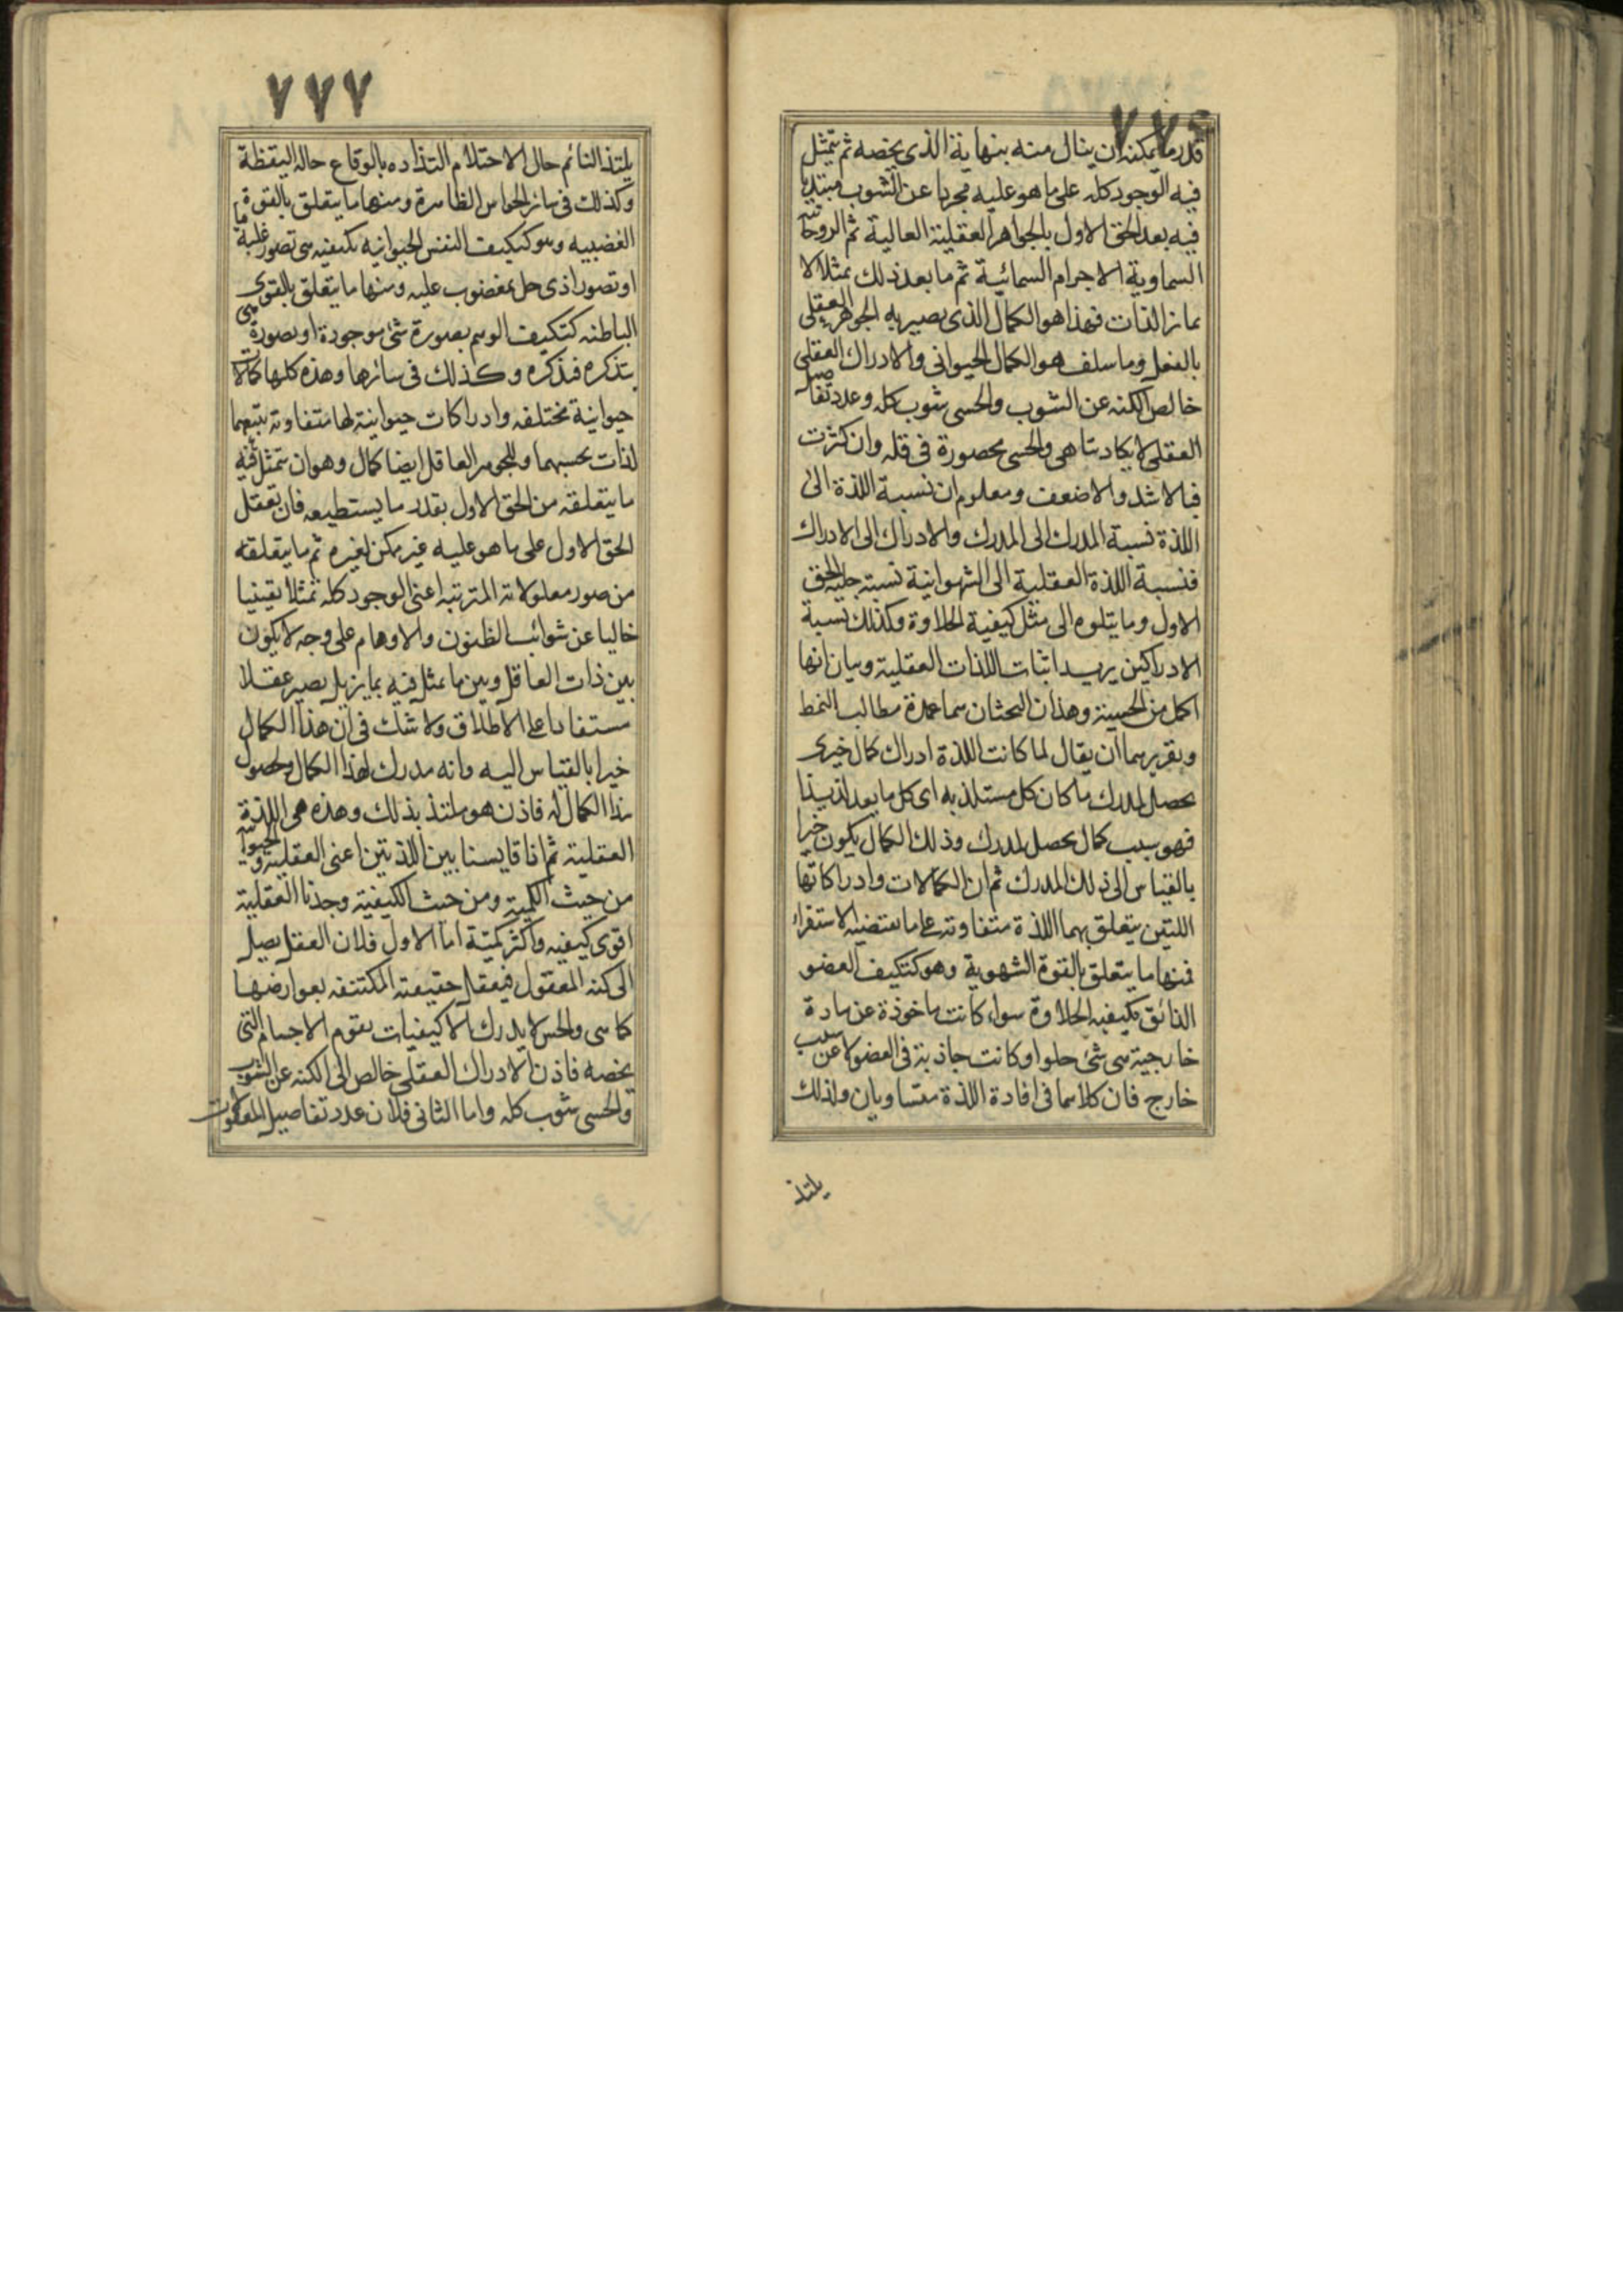 ٧٧٦
قدر ما يمكنه ان ينال منه بنهاية الذى يخصه ثم يتمثل
فيه الوجود كله على ما هو عليه مجردا عن الشوب مبتديا
فيه بعد الحق الاول بالجواهر العقلية العالية ثم الروحانية
السماوية الاجرام السمائية ثم ما بعد ذلك تمثلا لا
يمايز الذات فهذا هو الكمال الذى يصير به الجوهر العقلى
بالفعل وما سلف هو الكمال الحيوانى والادراك العقلى
خالص الكنه عن الشوب والحسى شوب كله وعدد تفاصيل
العقلى لا يكاد يتناهى والحسى محصورة فى قله وان كثرت
فبالاشد والاضعف ومعلوم ان نسبة اللذة الى
اللذة نسبة المدرك الى المدرك والادراك الى الادراك
فنسبة اللذة العقلية الى الشهوانية نسبة جلية الحق
الاول وما يتلوه الى مثل كيفية الحلاوة وكذلك نسبة
الادراكين يريد اثبات اللذات العقلية وبيان انها
اكمل من الحسية وهذان البحثان هما عمدة مطالب النمط
وتقريرهما ان يقال لما كانت اللذة ادراك كمال خيرى
يحصل لمدرك ما كان كل مستلذ به اى كل ما يعد لذيذا
فهو سبب كمال يحصل لمدرك وذلك الكمال يكون خيرا
بالقياس الى ذلك المدرك ثم ان الكمالات وادراكاتها
اللتين يتعلق بهما اللذة متفاوته على ما يقتضيه الاستقراء
فمنها ما يتعلق بالقوة الشهوية وهو كتكيف العضو
الذائق بكيفيه الحلاوة سواء كانت ماخوذة عن مادة
خارجية هى شئ حلو او كانت حادثة فى العضو لا عن سبب
خارج فان كلاهما فى افادة اللذة متساويان ولذلك
يلتذ
٧٧٧
يلتذ النائم حال الاحتلام التذاده بالوقاع حالة اليقظة
وكذلك فى سائر الحواس الظاهرة ومنها ما يتعلق بالقوة
الغضبيه وهو كتكيف النفس الحيوانيه بكيفيه هى تصور غلبة ما
او تصور اذى حل بمغضوب عليه ومنها ما يتعلق بالقوى
الباطنه كتكيف الوهم بصورة شئ موجودة او بصورة شئ
يتذكره فيذكره وكذلك فى سائرها وهذه كلها كمالات
حيوانية مختلفه وادراكات حيوانية لها متفاوته يتبعهما
لذات بحسبهما وللجوهر العاقل ايضا كمال وهو ان يتمثل فيه
ما يتعلقه من الحق الاول بقدر ما يستطيعه فان تعقل
الحق الاول على ما هو عليه غير ممكن لغيره ثم ما يتعلقه
من صور معلولاته المترتبه اعنى الوجود كله تمثلا يقينيا
خاليا عن شوائب الظنون والاوهام على وجه لا يكون
بين ذات العاقل وبين ما تمثل فيه تمايز بل يصير عقلا
مستفادا على الاطلاق ولا شك فى ان هذا الكمال
خيرا بالقياس اليه وانه مدرك لهذا الكمال ولحصول
هذا الكمال له فاذن هو ملتذ بذلك وهذه هى اللذة
العقلية ثم اذا قايسنا بين اللذتين اعنى العقلية والحيوانية
من حيث الكمية ومن حيث الكيفية وجدنا العقلية
اقوى كيفيه واكثر كمية اما الاول فلان العقل يصل
الى كنه المعقول فيعقل حقيقته المكتنفه بعوارضها
كما هى والحس لا يدرك الا كيفيات يقوم الاجسام التى
يخصه فاذن الادراك العقلى خالص الى الكنه عن الشوب
والحسى شوب كله واما الثانى فلان عدد تفاصيل المعقولات